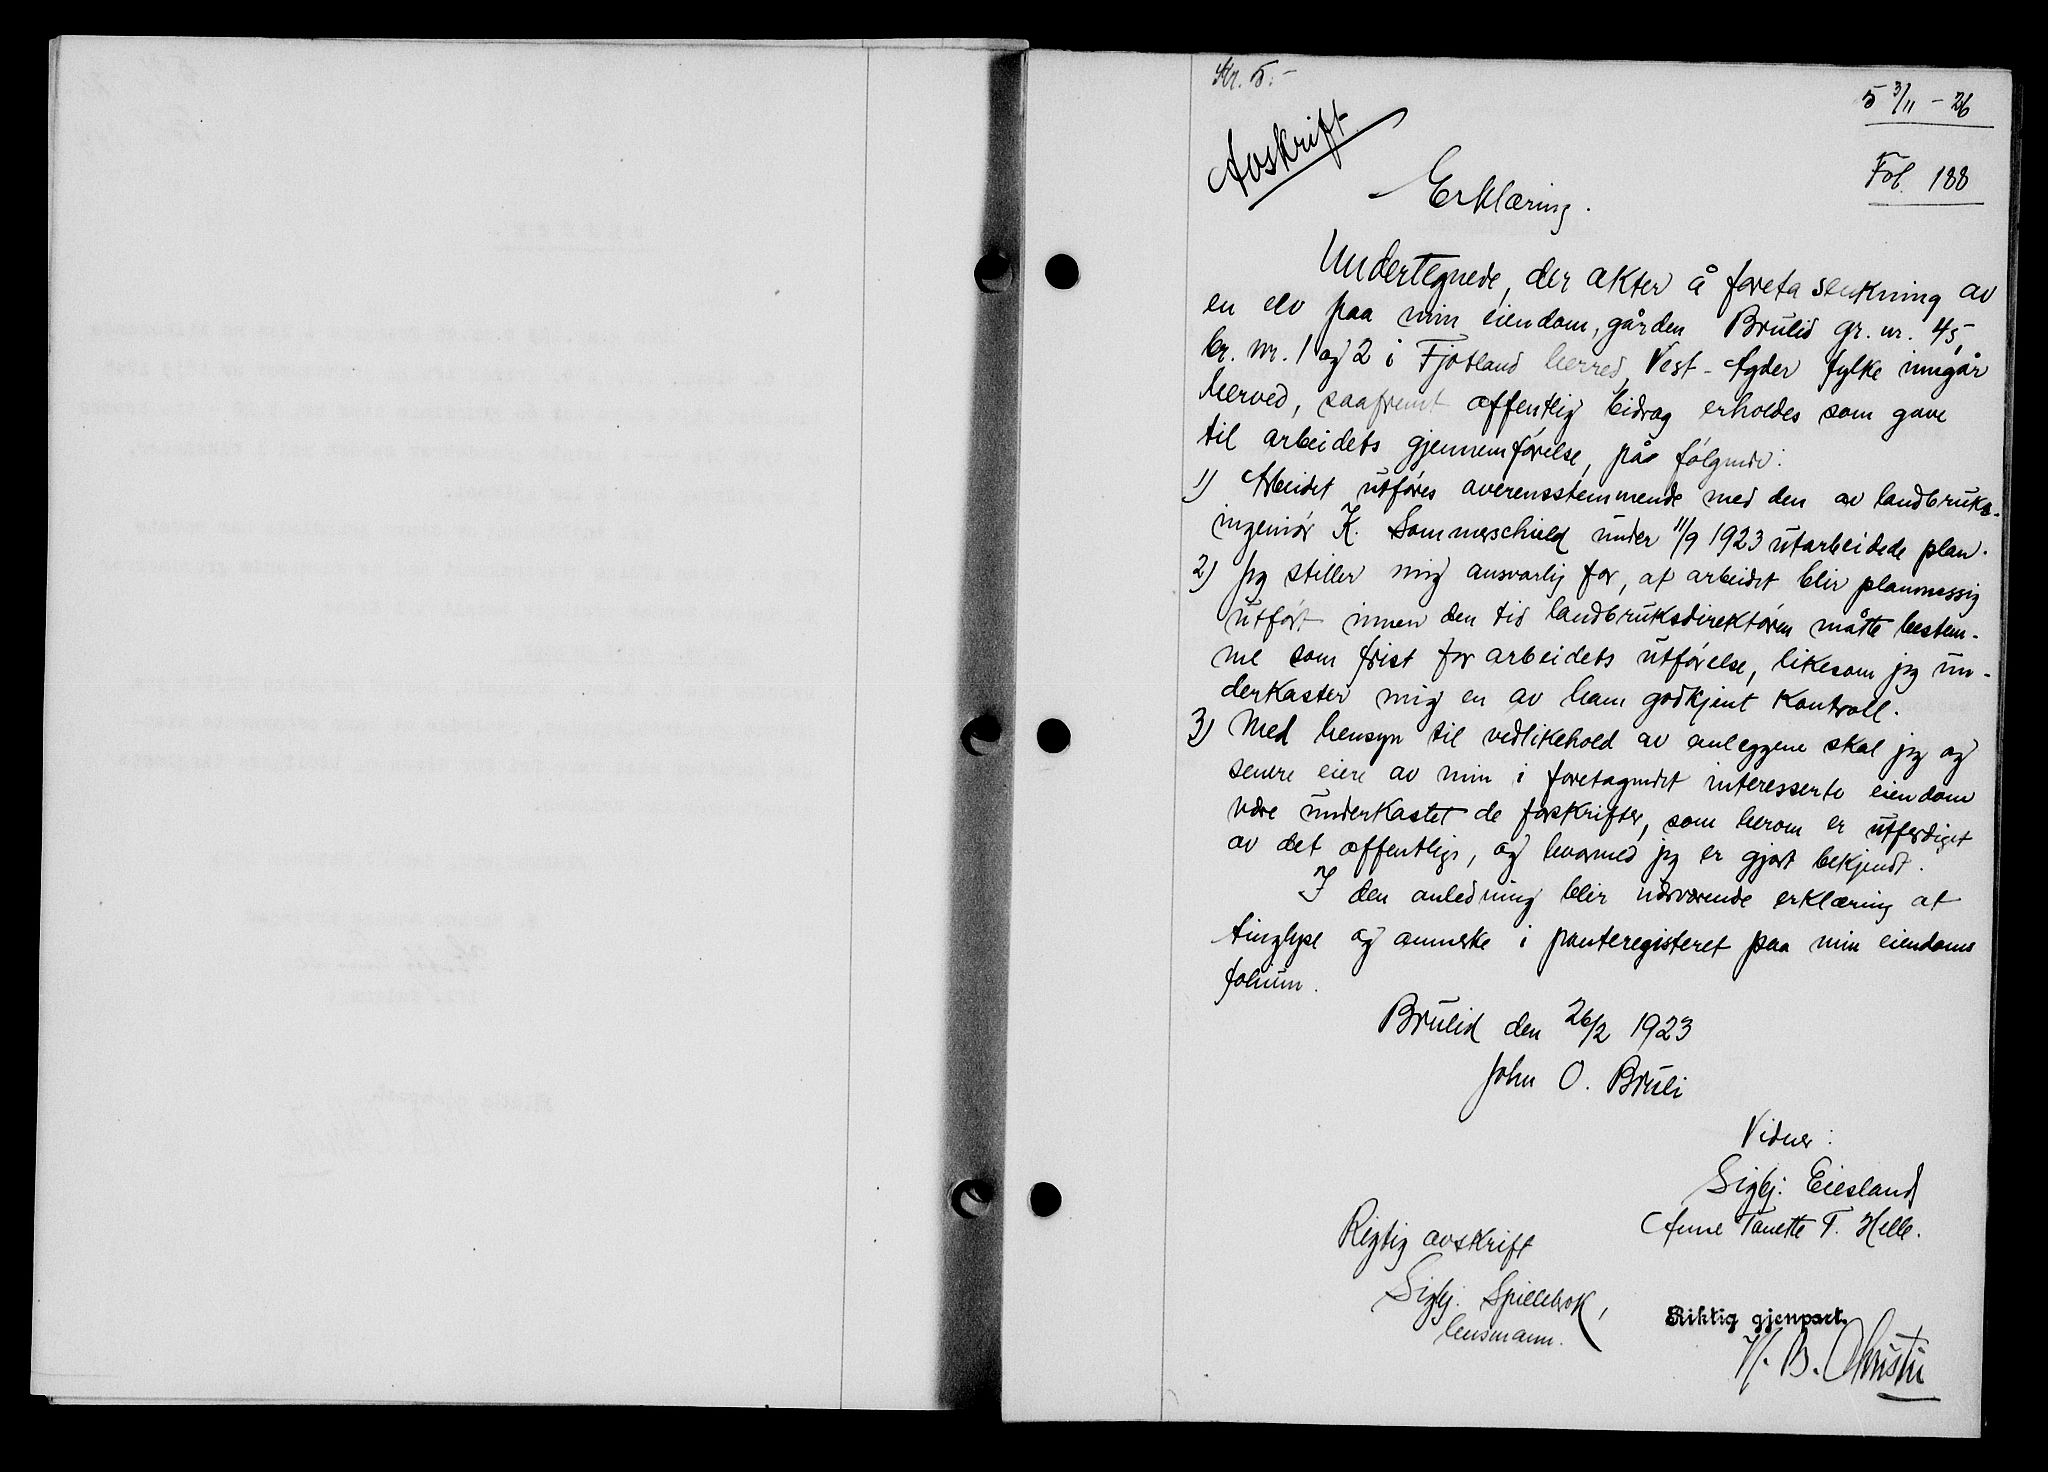 Kr. 5.-
5 3/11 - 26
Avskrift
Fol. 188
Erklæring.
Undertegnede, der akter å foreta senkning av
en elv paa min eiendom, gården Brulid gr. nr. 45,
br. nr. 1 og 2 i Fjotland herred, Vest-Agder fylke inngår
herved, saafremt offentlig bidrag erholdes som gave
til arbeidets gjennemførelse, på følgende:
1) Arbeidet utføres overensstemmende med den av landbruks-
ingeniør K. Sommerschield under 11/9 1923 utarbeidede plan.
2) Jeg stiller mig ansvarlig for, at arbeidet blir planmessig
utført innen den tid landbruksdirektøren måtte bestem-
me som frist for arbeidets utførelse, likesom jeg un-
derkaster mig en av ham godkjent kontroll.
3) Med hensyn til vedlikehold av anleggene skal jeg og
senere eiere av min i foretagendet interesserte eiendom
være underkastet de forskrifter, som herom er utferdiget
av det offentlige, og hvormed jeg er gjort bekjendt.
I den anledning blir nærværende erklæring at
tinglyse og anmerke i panteregisteret paa min eiendoms
folium.
Brulid den 26/2 1923
John O. Bruli
Vidner:
Sigbj. Eiesland
Anne Tanette T. Helle.
Rigtig avskrift
Sigbj. Spillebrok,
lensmann.
Riktig gjenpart.